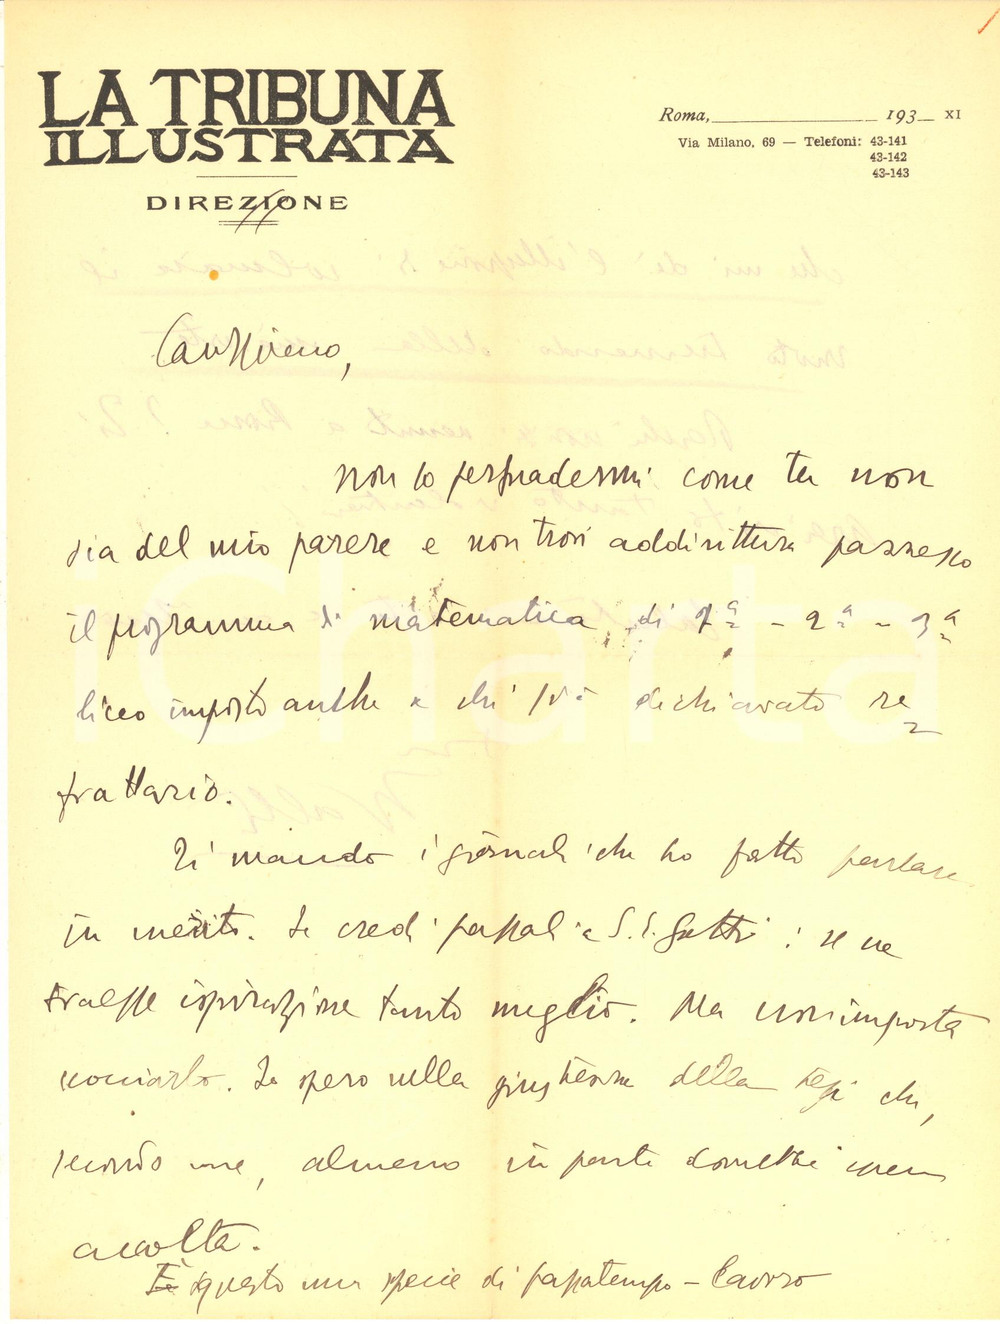 LA TRIBUNA
ILLUSTRATA
DIREZIONE
Roma, 193 XI
Via Milano, 69 — Telefoni: 43-141
43-142
43-143
Carissimo,
non so persuadermi come tu non
sia del mio parere e non trovi addirittura pazzesco
il programma di matematica di 1ª - 2ª - 3ª
liceo imposto anche a chi si è dichiarato re=
frattario.
Ti mando i giornali che ho fatto parlare
in merito. Se credi passali a S. E. Gatti: se ne
traesse ispirazione tanto meglio. Ma non importa
seccarlo. Io spero nella giustezza della tesi che,
secondo me, almeno in parte dovrebbe essere
accolta.
È questo una specie di passatempo - lavoro
iCharta